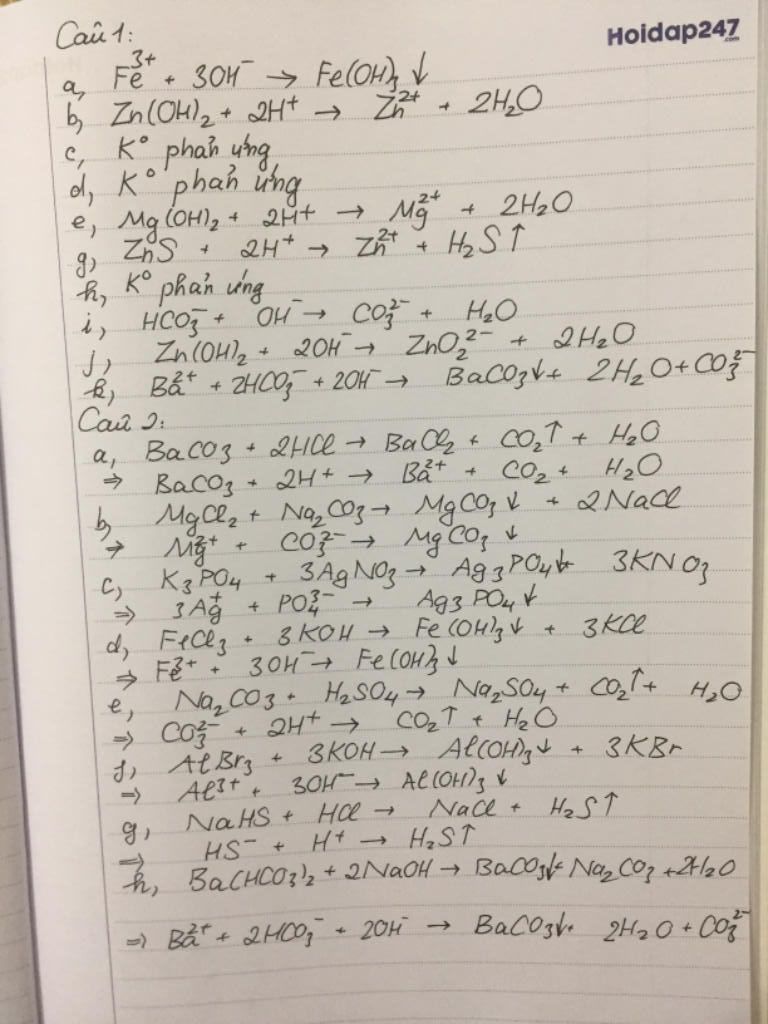 Hoidap247
.com
Câu 1:
a, Fe³⁺ + 3OH⁻ → Fe(OH)₃ ↓
b, Zn(OH)₂ + 2H⁺ → Zn²⁺ + 2H₂O
c, K° phản ứng
d, K° phản ứng
e, Mg(OH)₂ + 2H⁺ → Mg²⁺ + 2H₂O
g, ZnS + 2H⁺ → Zn²⁺ + H₂S ↑
h, K° phản ứng
i, HCO₃⁻ + OH⁻ → CO₃²⁻ + H₂O
j, Zn(OH)₂ + 2OH⁻ → ZnO₂²⁻ + 2H₂O
k, Ba²⁺ + 2HCO₃⁻ + 2OH⁻ → BaCO₃↓ + 2H₂O + CO₃²⁻
Câu 2:
a, BaCO₃ + 2HCl → BaCl₂ + CO₂↑ + H₂O
⇒ BaCO₃ + 2H⁺ → Ba²⁺ + CO₂ + H₂O
b, MgCl₂ + Na₂CO₃ → MgCO₃ ↓ + 2NaCl
→ Mg²⁺ + CO₃²⁻ → MgCO₃ ↓
c, K₃PO₄ + 3AgNO₃ → Ag₃PO₄↓ + 3KNO₃
⇒ 3Ag⁺ + PO₄³⁻ → Ag₃PO₄↓
d, FeCl₃ + 3KOH → Fe(OH)₃↓ + 3KCl
⇒ Fe³⁺ + 3OH⁻ → Fe(OH)₃↓
e, Na₂CO₃ + H₂SO₄ → Na₂SO₄ + CO₂↑ + H₂O
⇒ CO₃²⁻ + 2H⁺ → CO₂↑ + H₂O
f, AlBr₃ + 3KOH → Al(OH)₃↓ + 3KBr
⇒ Al³⁺ + 3OH⁻ → Al(OH)₃↓
g, NaHS + HCl → NaCl + H₂S↑
⇒ HS⁻ + H⁺ → H₂S↑
h, Ba(HCO₃)₂ + 2NaOH → BaCO₃↓ + Na₂CO₃ + 2H₂O
⇒ Ba²⁺ + 2HCO₃⁻ + 2OH⁻ → BaCO₃↓ + 2H₂O + CO₃²⁻